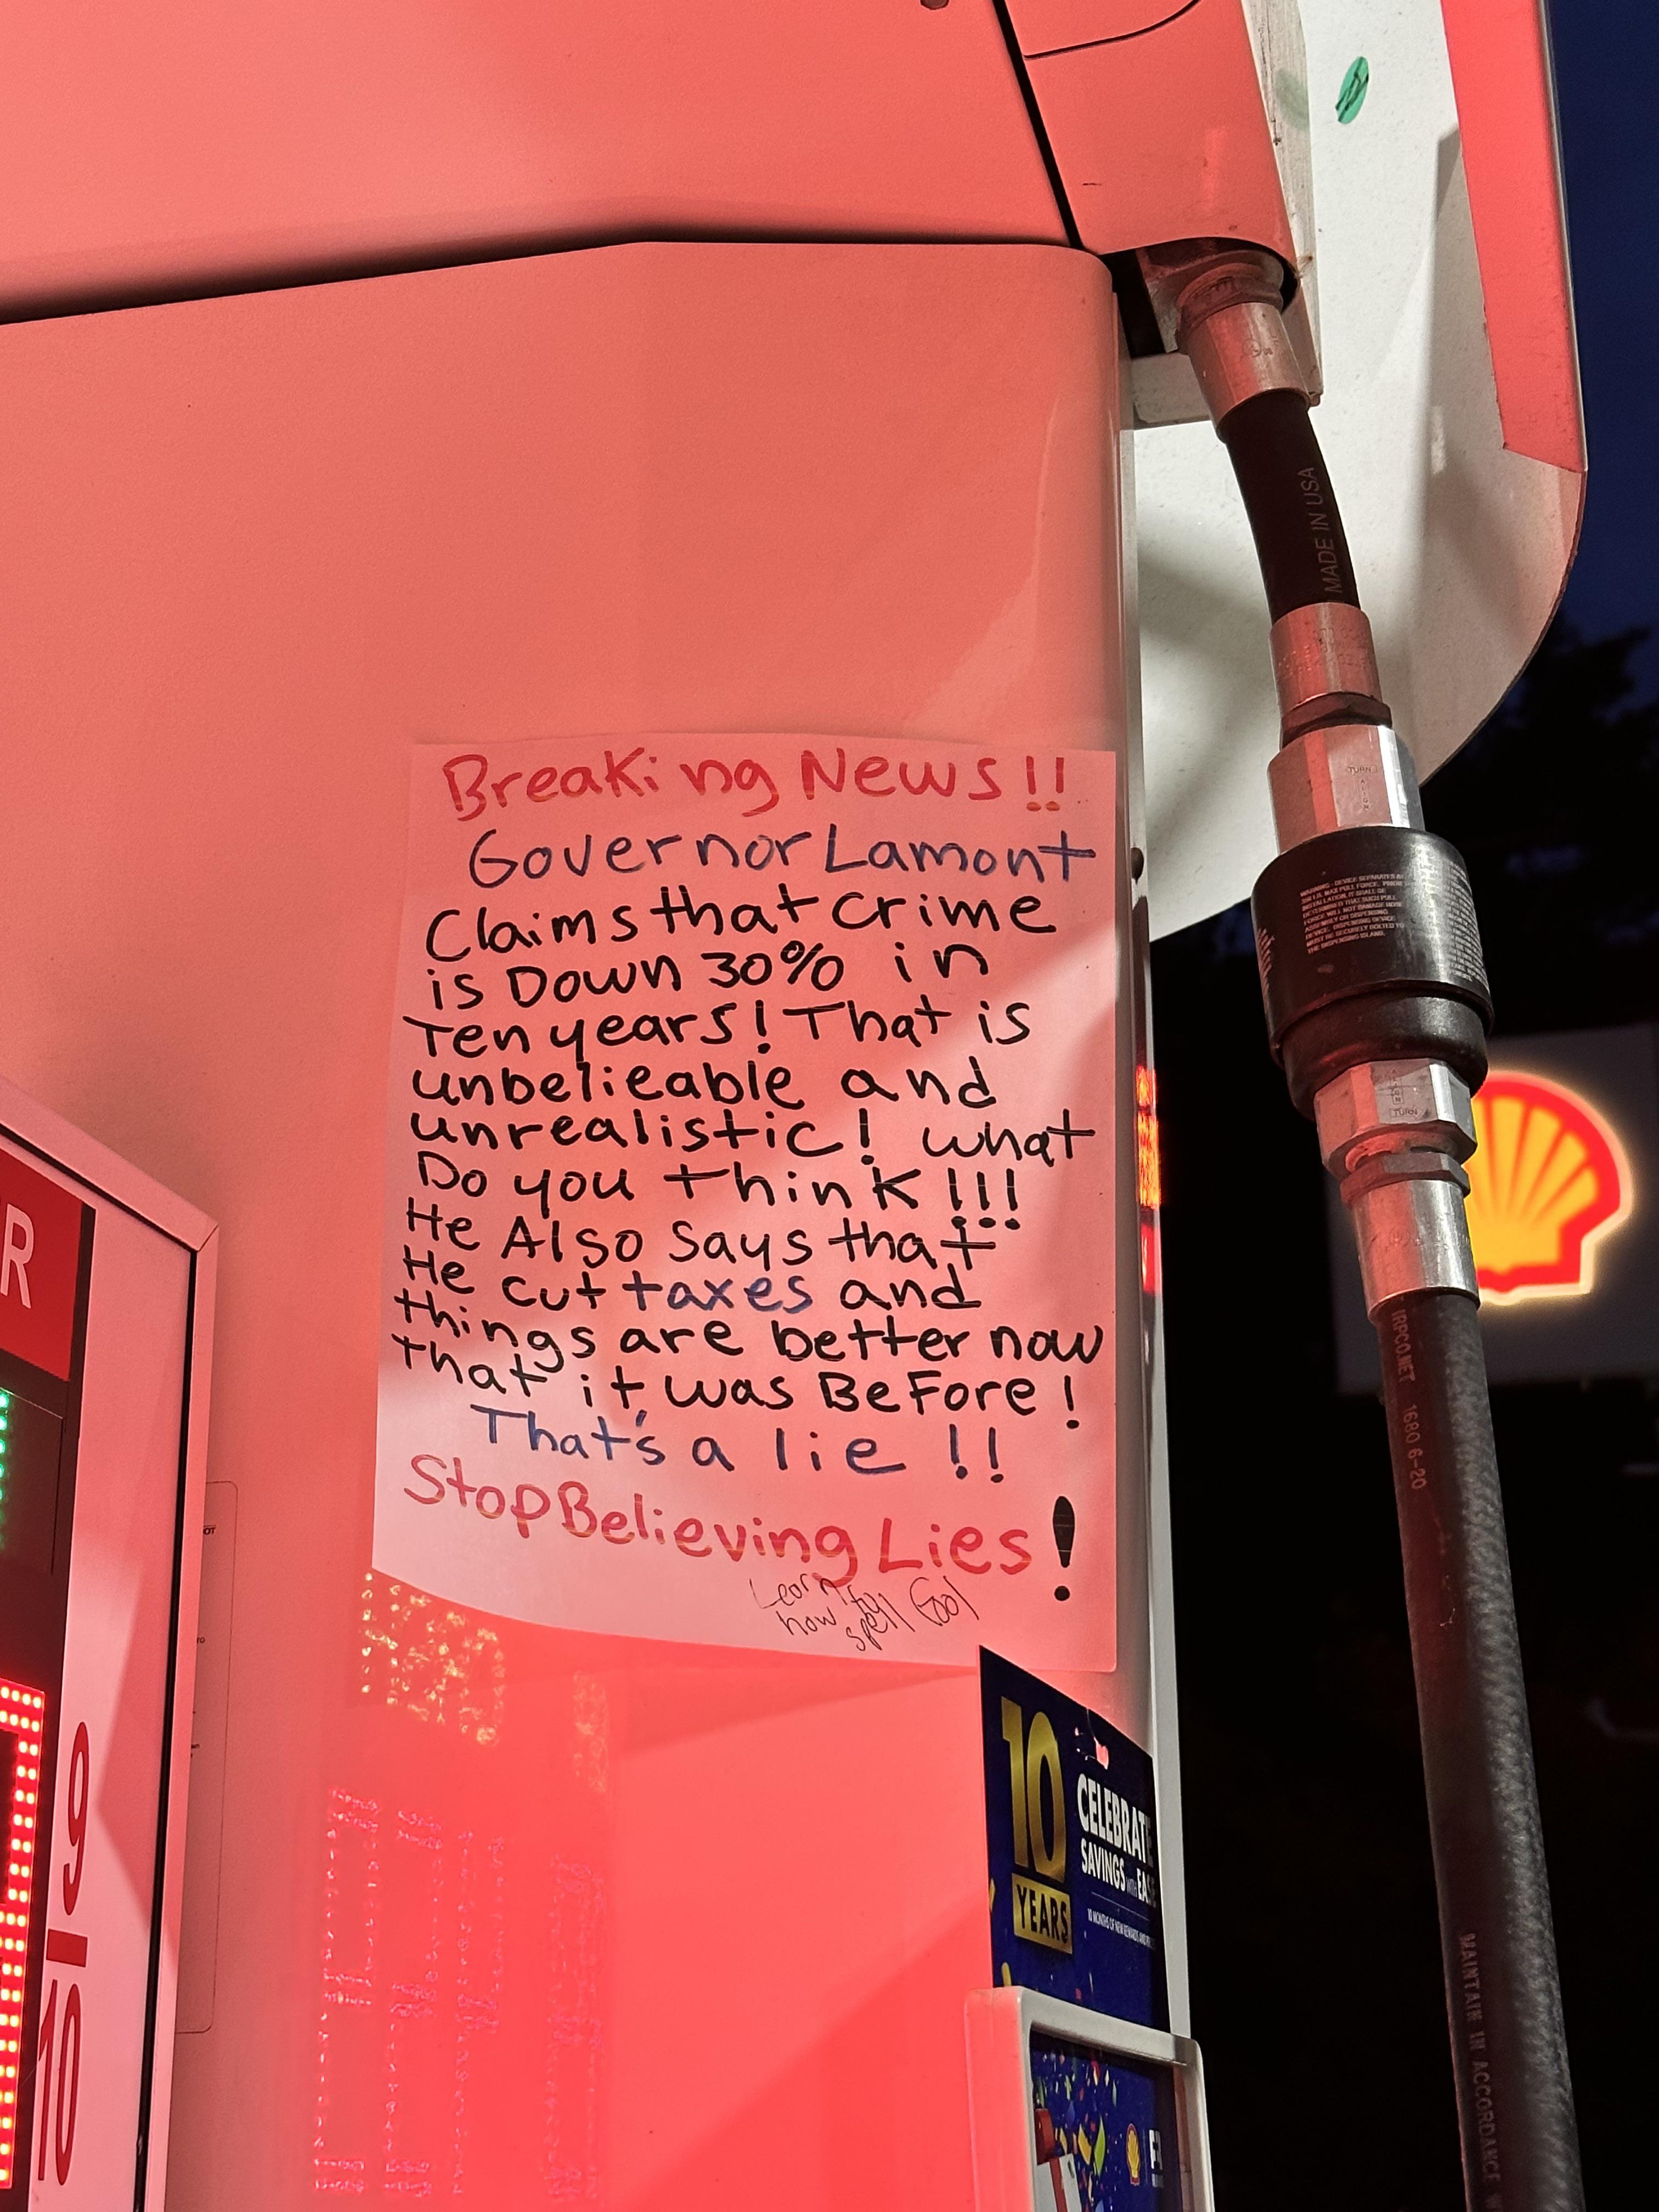 Breaking News!!
Governor Lamont
Claims that crime
is Down 30% in
Ten years! That is
unbelieable and
unrealistic! what
Do you think!!!
He Also Says that
He cut taxes and
things are better now
that it was Before!
That's a lie!!
Stop Believing Lies!
Learn
how to
spell Fool
MADE IN USA
TURN
TURN
IRPCO.NET 1680 6-20
MAINTAIN IN ACCORDANCE
R
9
10
10
YEARS
CELEBRATE
SAVINGS WITH EAS